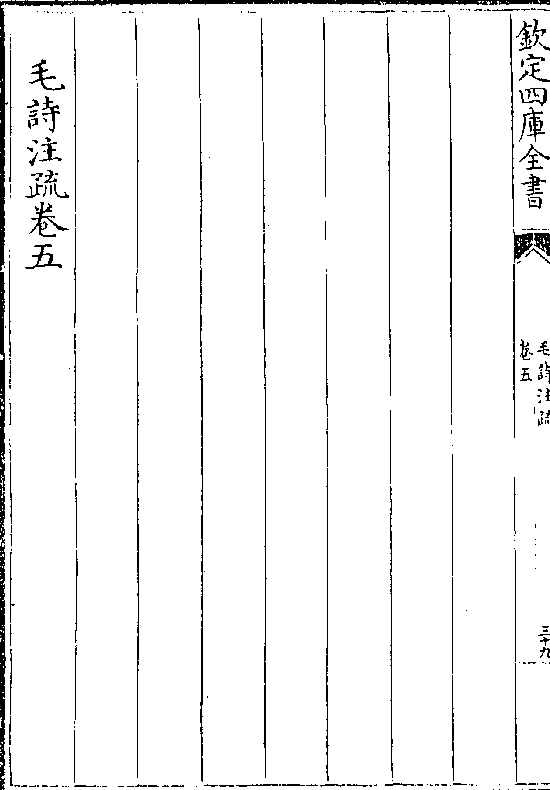 欽定四庫全書
毛詩注疏
卷五
三十九
毛詩注疏卷五